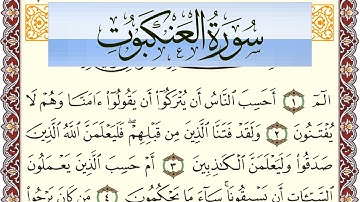 سُورَةُ الْعَنكَبُوتِ
الٓمٓ ١ أَحَسِبَ ٱلنَّاسُ أَن يُتْرَكُوٓا۟ أَن يَقُولُوٓا۟ ءَامَنَّا وَهُمْ لَا
يُفْتَنُونَ ٢ وَلَقَدْ فَتَنَّا ٱلَّذِينَ مِن قَبْلِهِمْ ۖ فَلَيَعْلَمَنَّ ٱللَّهُ ٱلَّذِينَ
صَدَقُوا۟ وَلَيَعْلَمَنَّ ٱلْكَٰذِبِينَ ٣ أَمْ حَسِبَ ٱلَّذِينَ يَعْمَلُونَ
ٱلسَّيِّـَٔاتِ أَن يَسْبِقُونَا ۚ سَآءَ مَا يَحْكُمُونَ ٤ مَن كَانَ يَرْجُوا۟